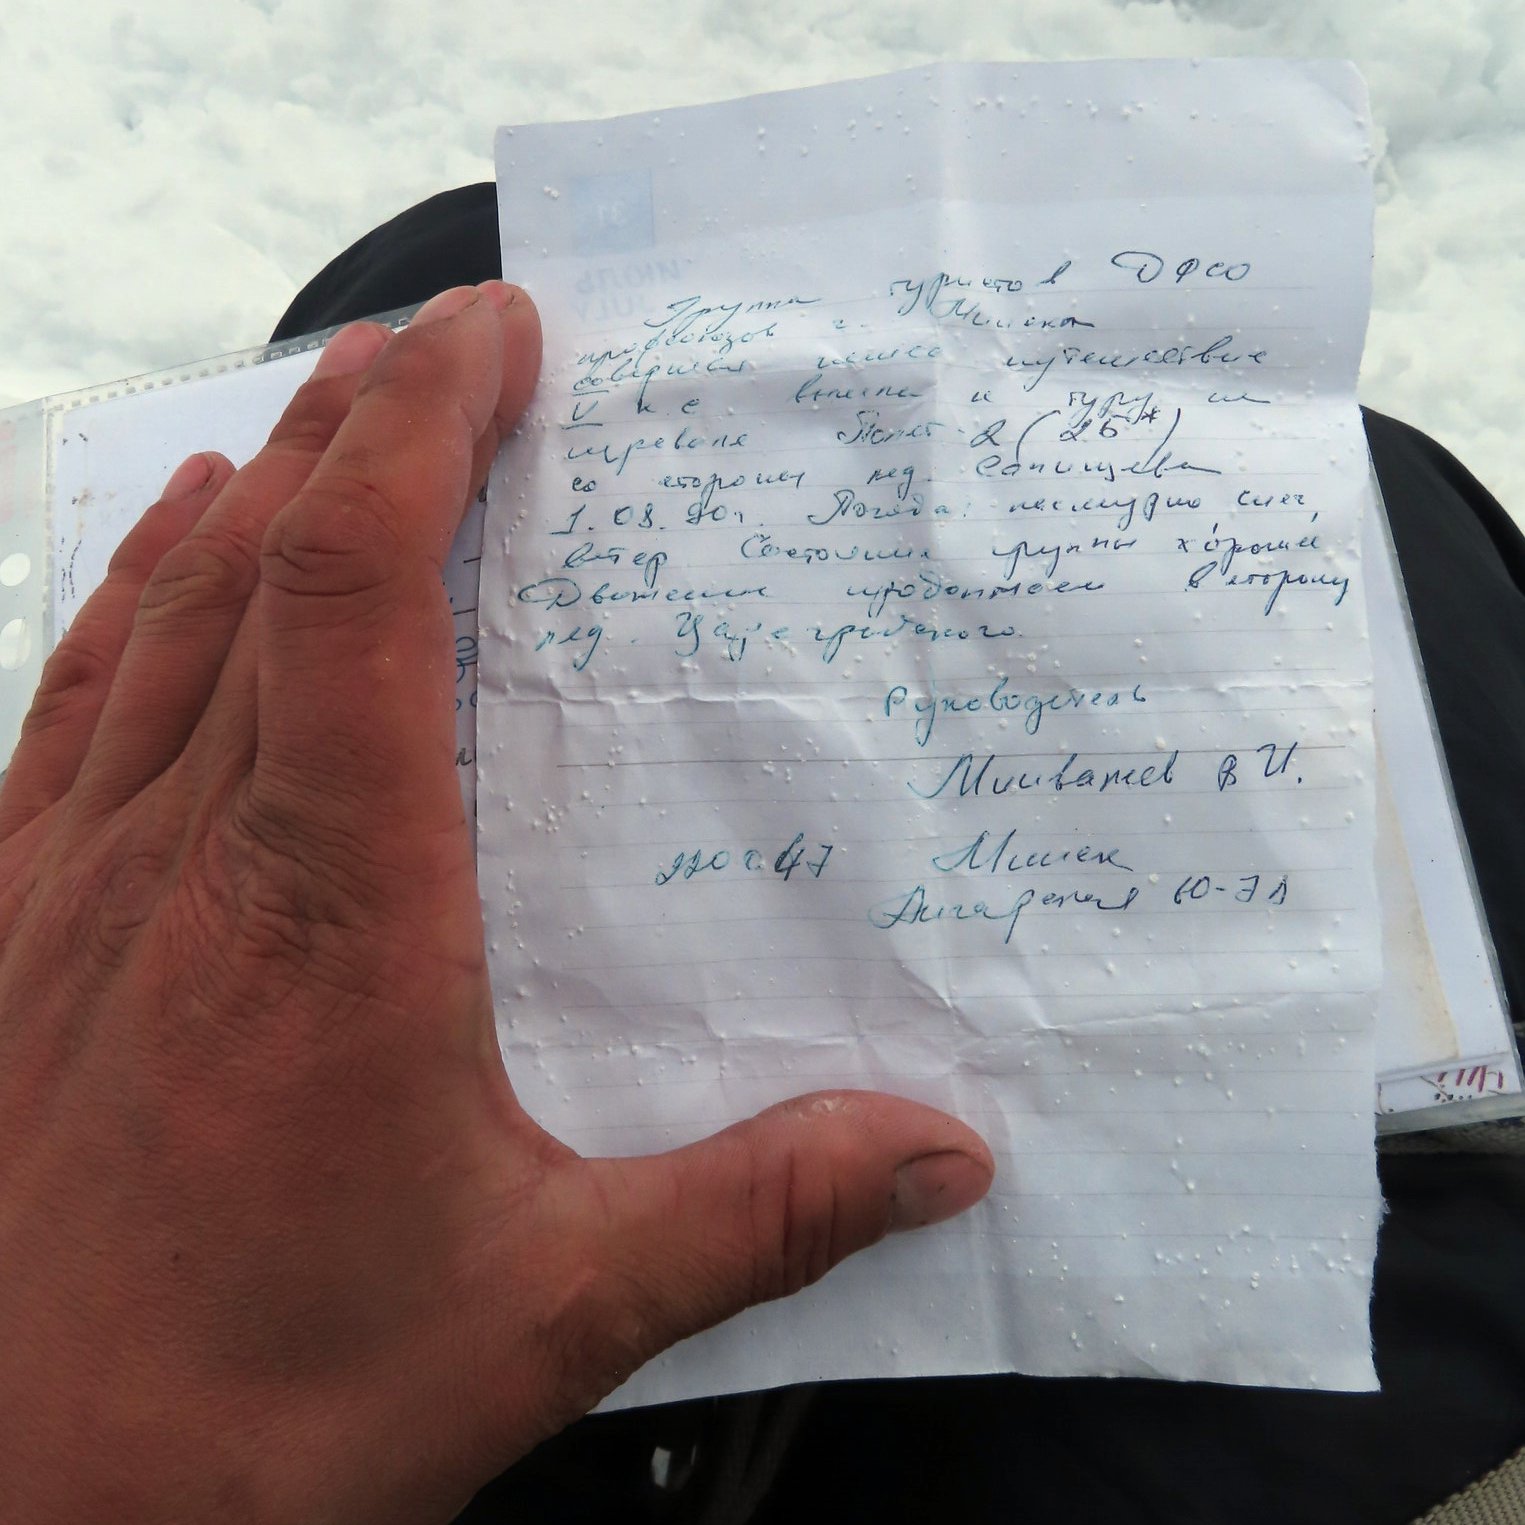 Группа туристов ДФСО
профсоюзов г. Минска
совершая пешее путешествие
V к.с вышла к туру на
перевале Полёт-2 (2Б*)
со стороны лед. Сапищева
1.08.90г. Погода: пасмурно снег,
ветер Состояние группы хорошее
Движение продолжаем в сторону
лед. Цареградского.
Руководитель
В И.
220047 Минск
Ангарская
31
ИЮЛЬ
JULY